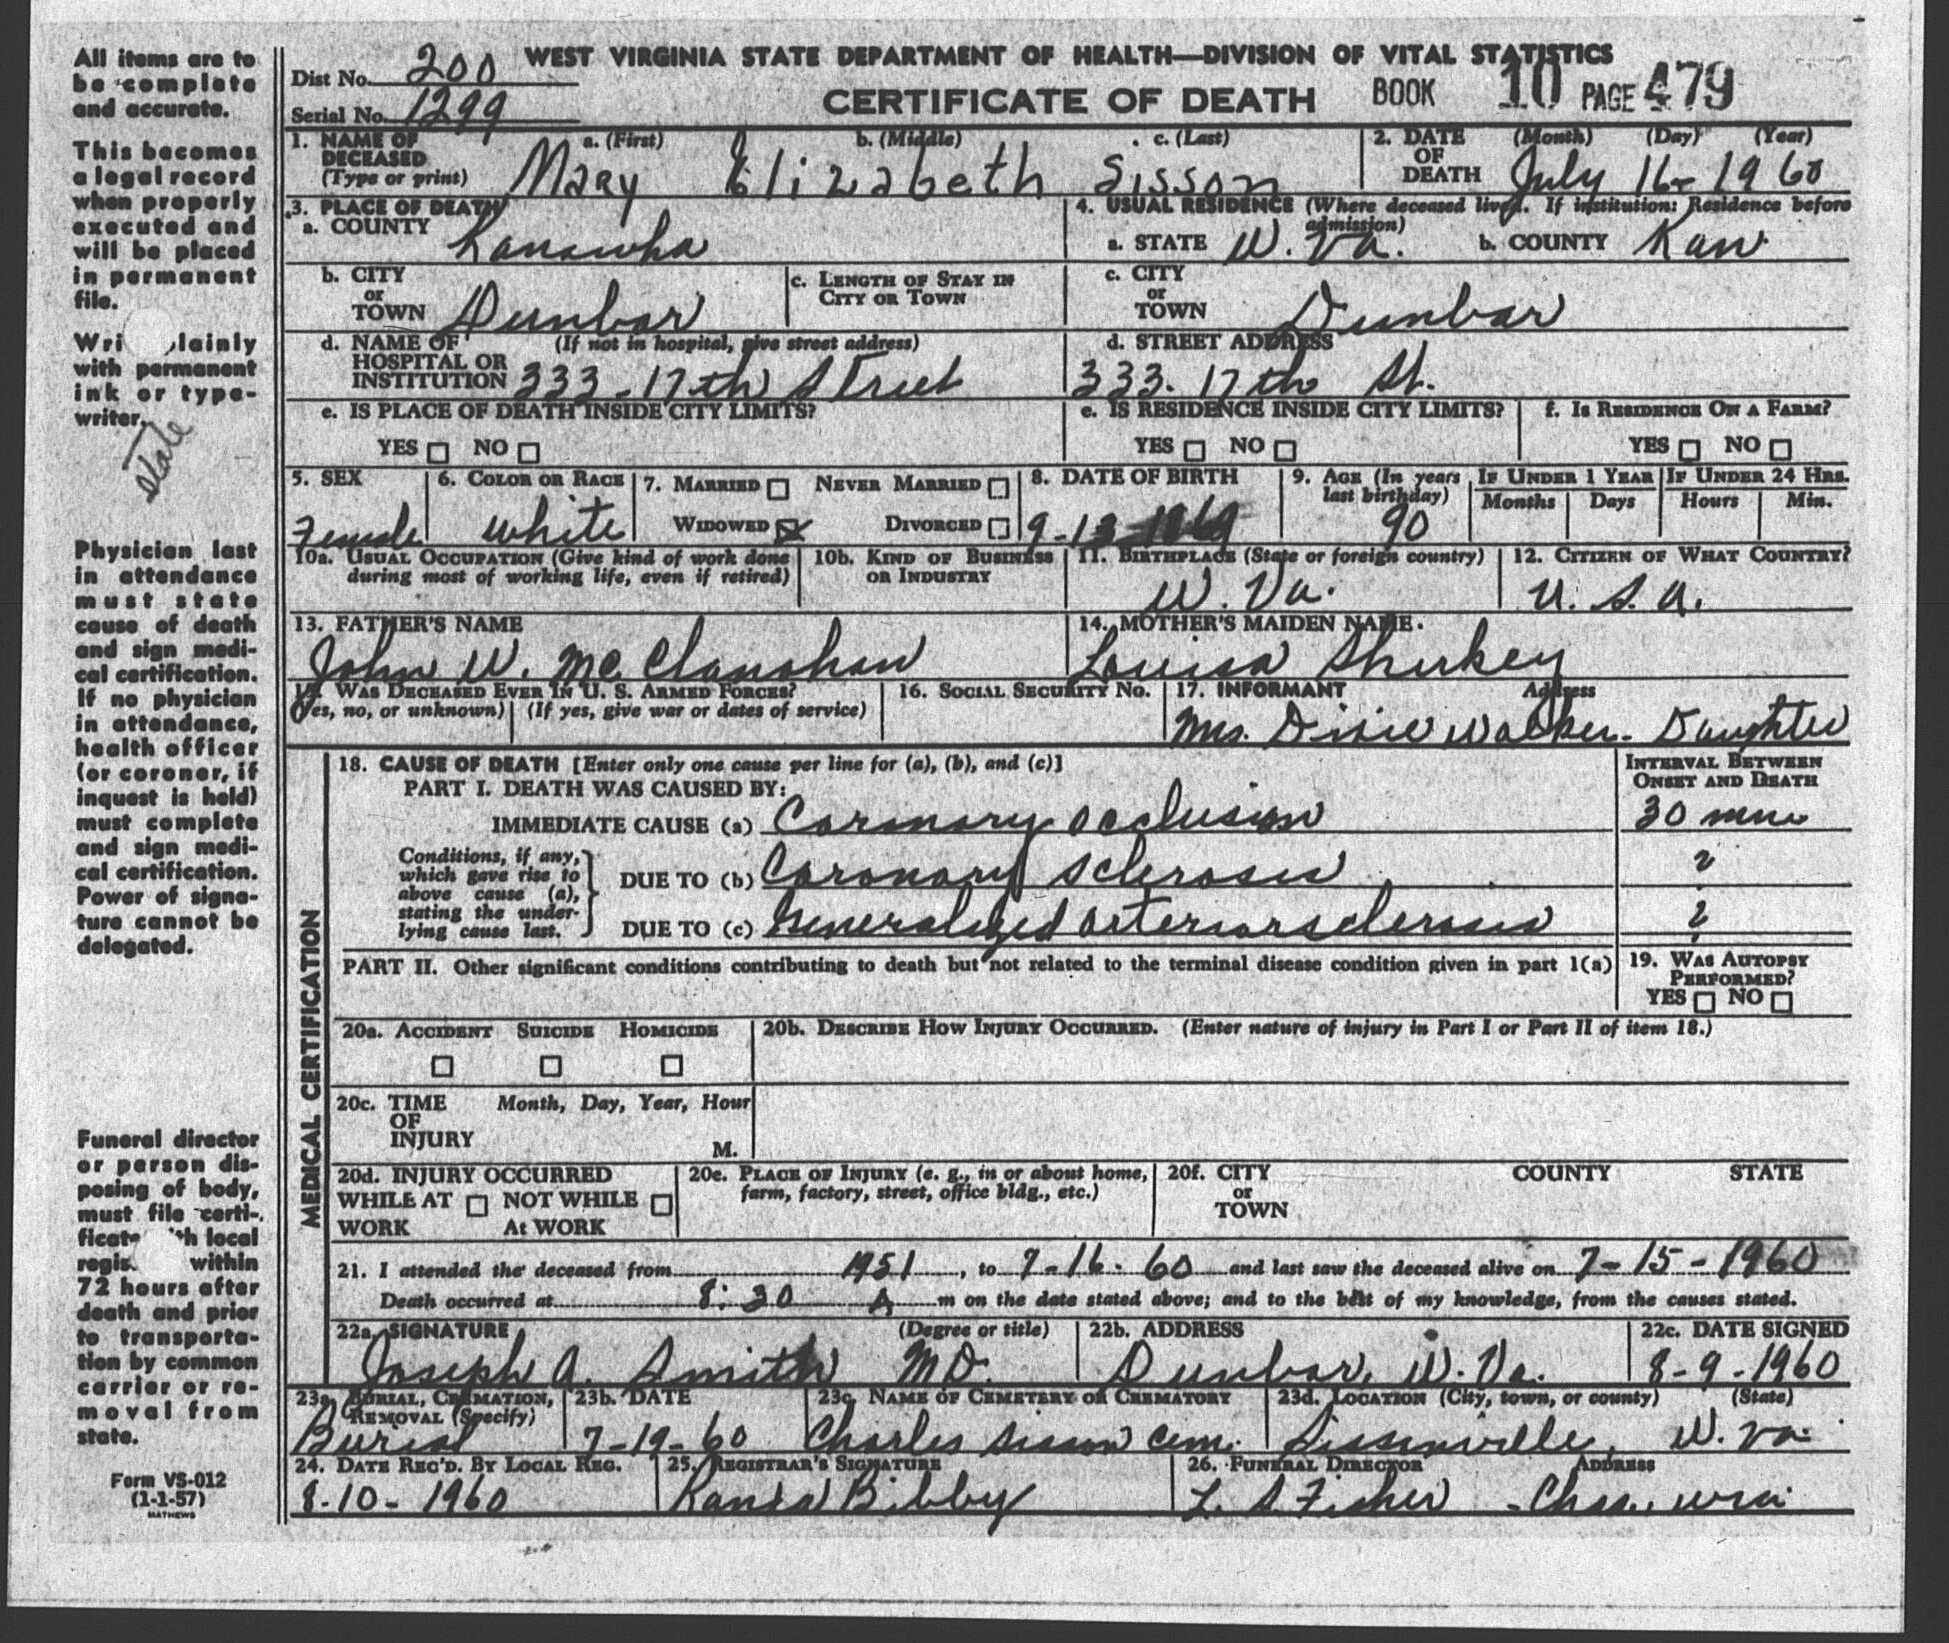 All items are to
be complete
and accurate.
This becomes
a legal record
when properly
executed and
will be placed
in permanent
file.
Wri lainly
with permanent
ink or type-
writer.
State
Physician last
in attendance
must state
cause of death
and sign medi-
cal certification.
If no physician
in attendance,
health officer
(or coroner, if
inquest is held)
must complete
and sign medi-
cal certification.
Power of signa-
ture cannot be
delegated.
Funeral director
or person dis-
posing of body,
must file certi-
ficate th local
regis. within
72 hours after
death and prior
to transporta-
tion by common
carrier or re-
moval from
state.
Form VS-012
(1-1-57)
MATHEWS
WEST VIRGINIA STATE DEPARTMENT OF HEALTH—DIVISION OF VITAL STATISTICS
Dist No. 200
Serial No. 1299
CERTIFICATE OF DEATH BOOK 10 PAGE 479
1. NAME OF DECEASED (Type or print) a. (First) b. (Middle) c. (Last)
Mary Elizabeth Sisson
2. DATE OF DEATH (Month) (Day) (Year)
July 16 - 1960
3. PLACE OF DEATH
a. COUNTY Kanawha
4. USUAL RESIDENCE (Where deceased lived. If institution: Residence before admission)
a. STATE W. Va. b. COUNTY Kan
b. CITY or TOWN Dunbar
c. LENGTH OF STAY IN CITY OR TOWN
c. CITY or TOWN Dunbar
d. NAME OF HOSPITAL OR INSTITUTION (If not in hospital, give street address)
333 - 17th Street
d. STREET ADDRESS
333. 17th St.
e. IS PLACE OF DEATH INSIDE CITY LIMITS?
YES NO
e. IS RESIDENCE INSIDE CITY LIMITS?
YES NO
f. IS RESIDENCE ON A FARM?
YES NO
5. SEX
Female
6. COLOR OR RACE
White
7. MARRIED NEVER MARRIED
WIDOWED X DIVORCED
8. DATE OF BIRTH
9-13-1869
9. AGE (In years last birthday)
90
IF UNDER 1 YEAR
Months Days
IF UNDER 24 HRS.
Hours Min.
10a. USUAL OCCUPATION (Give kind of work done during most of working life, even if retired)
10b. KIND OF BUSINESS OR INDUSTRY
11. BIRTHPLACE (State or foreign country)
W. Va.
12. CITIZEN OF WHAT COUNTRY?
U. S. A.
13. FATHER'S NAME
John W. McClanahan
14. MOTHER'S MAIDEN NAME.
Louisa Shirkey
15. WAS DECEASED EVER IN U. S. ARMED FORCES?
(Yes, no, or unknown) (If yes, give war or dates of service)
16. SOCIAL SECURITY NO.
17. INFORMANT Address
Mrs. Dixie Walker. Daughter
MEDICAL CERTIFICATION
18. CAUSE OF DEATH [Enter only one cause per line for (a), (b), and (c)]
INTERVAL BETWEEN ONSET AND DEATH
PART I. DEATH WAS CAUSED BY:
IMMEDIATE CAUSE (a) Coronary occlusion 30 min
Conditions, if any, which gave rise to above cause (a), stating the under-lying cause last.
DUE TO (b) Coronary sclerosis ?
DUE TO (c) Generalized arteriorsclerosis ?
PART II. Other significant conditions contributing to death but not related to the terminal disease condition given in part 1(a)
19. WAS AUTOPSY PERFORMED?
YES NO
20a. ACCIDENT SUICIDE HOMICIDE
20b. DESCRIBE HOW INJURY OCCURRED. (Enter nature of injury in Part I or Part II of item 18.)
20c. TIME OF INJURY Month, Day, Year, Hour
M.
20d. INJURY OCCURRED
WHILE AT WORK NOT WHILE At WORK
20e. PLACE OF INJURY (e. g., in or about home, farm, factory, street, office bldg., etc.)
20f. CITY or TOWN COUNTY STATE
21. I attended the deceased from 1951, to 7-16-60 and last saw the deceased alive on 7-15-1960
Death occurred at 8:30 A m on the date stated above; and to the best of my knowledge, from the causes stated.
22a. SIGNATURE (Degree or title)
Joseph A. Smith MD.
22b. ADDRESS
Dunbar, W. Va.
22c. DATE SIGNED
8-9-1960
23a. BURIAL, CREMATION, REMOVAL (Specify)
Burial
23b. DATE
7-19-60
23c. NAME OF CEMETERY OR CREMATORY
Charles Sisson Cem.
23d. LOCATION (City, town, or county) (State)
Sissonville, W. Va.
24. DATE REC'D. BY LOCAL REG.
8-10-1960
25. REGISTRAR'S SIGNATURE
Bibby
26. FUNERAL DIRECTOR ADDRESS
L. S Fisher - Chas.,